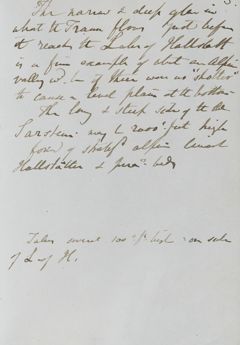 The narrow & deep glen in
which the Traun flows just before
it reaches the Lake of Hallstatt
is a fine example of what an Alpine
valley wd. be if there were no "shelves"
to cause a level plain at the bottom
The long & steep sides of the
2000 feet high
alpine
Hallstätter &
Talus about 100 ft high on side
of L of H.